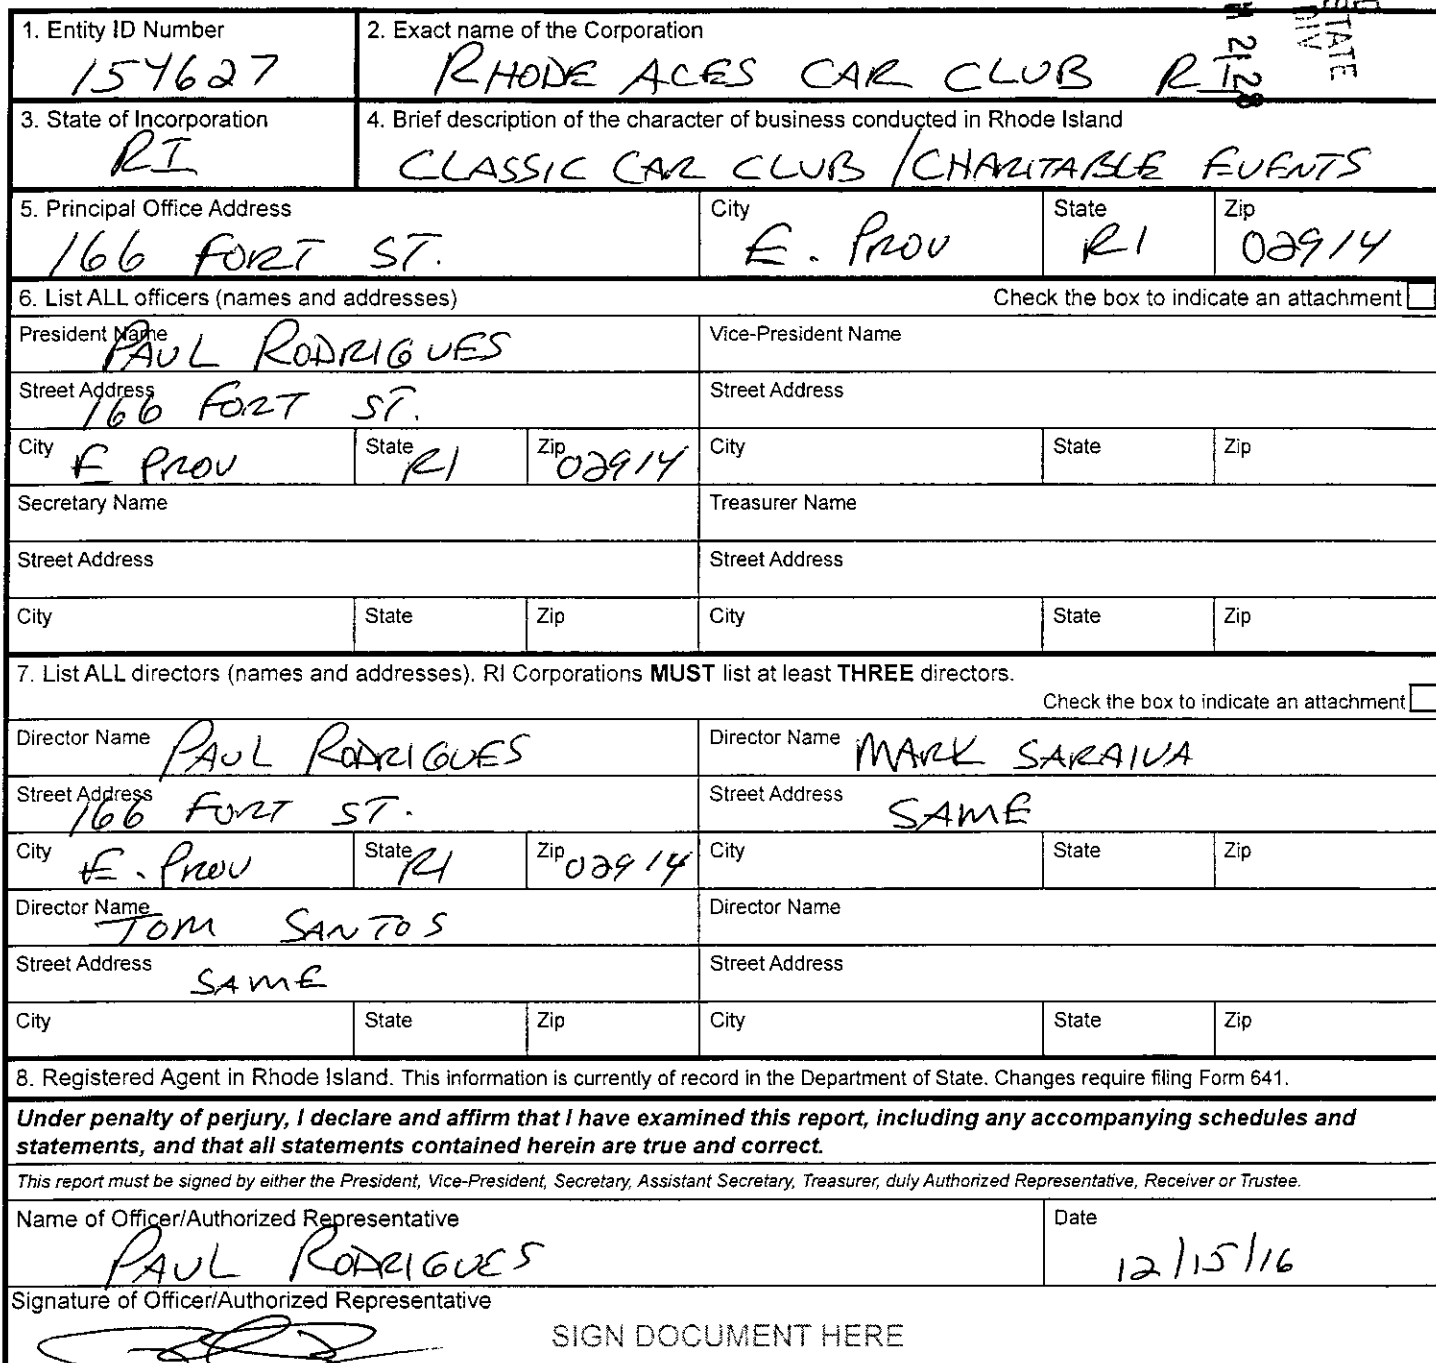 1. Entity ID Number
154627
2. Exact name of the Corporation
RHODE ACES CAR CLUB RI
STATE
3. State of Incorporation
RI
4. Brief description of the character of business conducted in Rhode Island
CLASSIC CAR CLUB / CHARITABLE EVENTS
5. Principal Office Address
166 FORT ST.
City
E. PROV
State
RI
Zip
02914
6. List ALL officers (names and addresses)
Check the box to indicate an attachment
President Name
PAUL RODRIGUES
Vice-President Name
Street Address
166 FORT ST.
Street Address
City E PROV State RI Zip 02914
City State Zip
Secretary Name
Treasurer Name
Street Address
Street Address
City State Zip
City State Zip
7. List ALL directors (names and addresses). RI Corporations MUST list at least THREE directors.
Check the box to indicate an attachment
Director Name PAUL RODRIGUES
Director Name MARK SARAIVA
Street Address 166 FORT ST.
Street Address SAME
City E. PROV State RI Zip 02914
City State Zip
Director Name TOM SANTOS
Director Name
Street Address SAME
Street Address
City State Zip
City State Zip
8. Registered Agent in Rhode Island. This information is currently of record in the Department of State. Changes require filing Form 641.
Under penalty of perjury, I declare and affirm that I have examined this report, including any accompanying schedules and
statements, and that all statements contained herein are true and correct.
This report must be signed by either the President, Vice-President, Secretary, Assistant Secretary, Treasurer, duly Authorized Representative, Receiver or Trustee.
Name of Officer/Authorized Representative
PAUL RODRIGUES
Date
12/15/16
Signature of Officer/Authorized Representative
SIGN DOCUMENT HERE